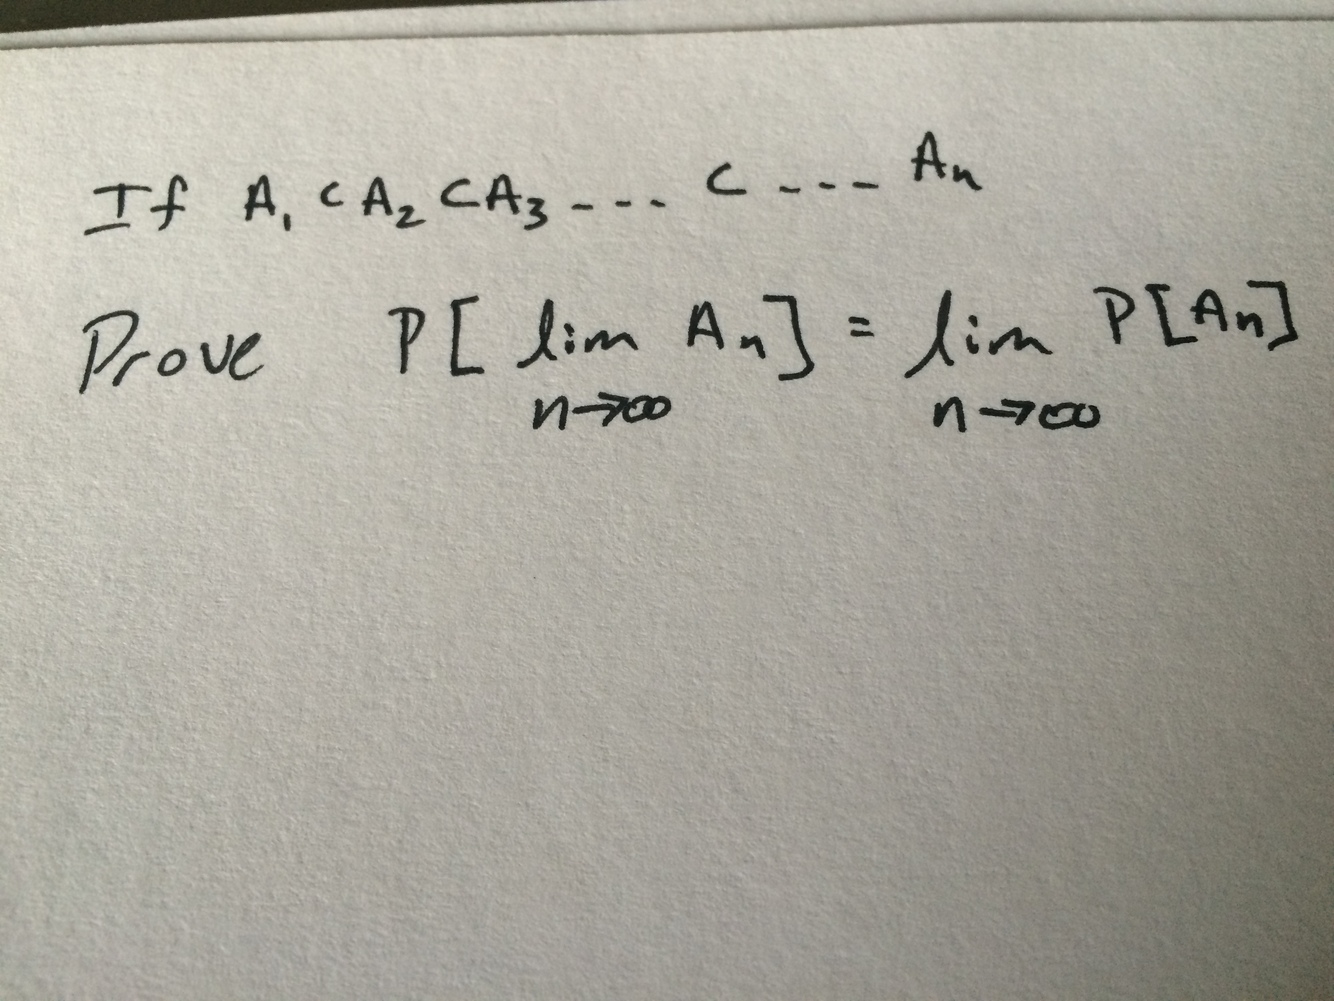 If A₁ ⊂ A₂ ⊂ A₃ --- ⊂ --- Aₙ
Prove P[ lim Aₙ] = lim P[Aₙ]
n→∞ n→∞